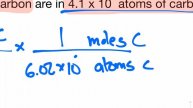 arbon are in 4.1 x 10 atoms of carb
x 1 moles C
6.02 x 10 atoms C